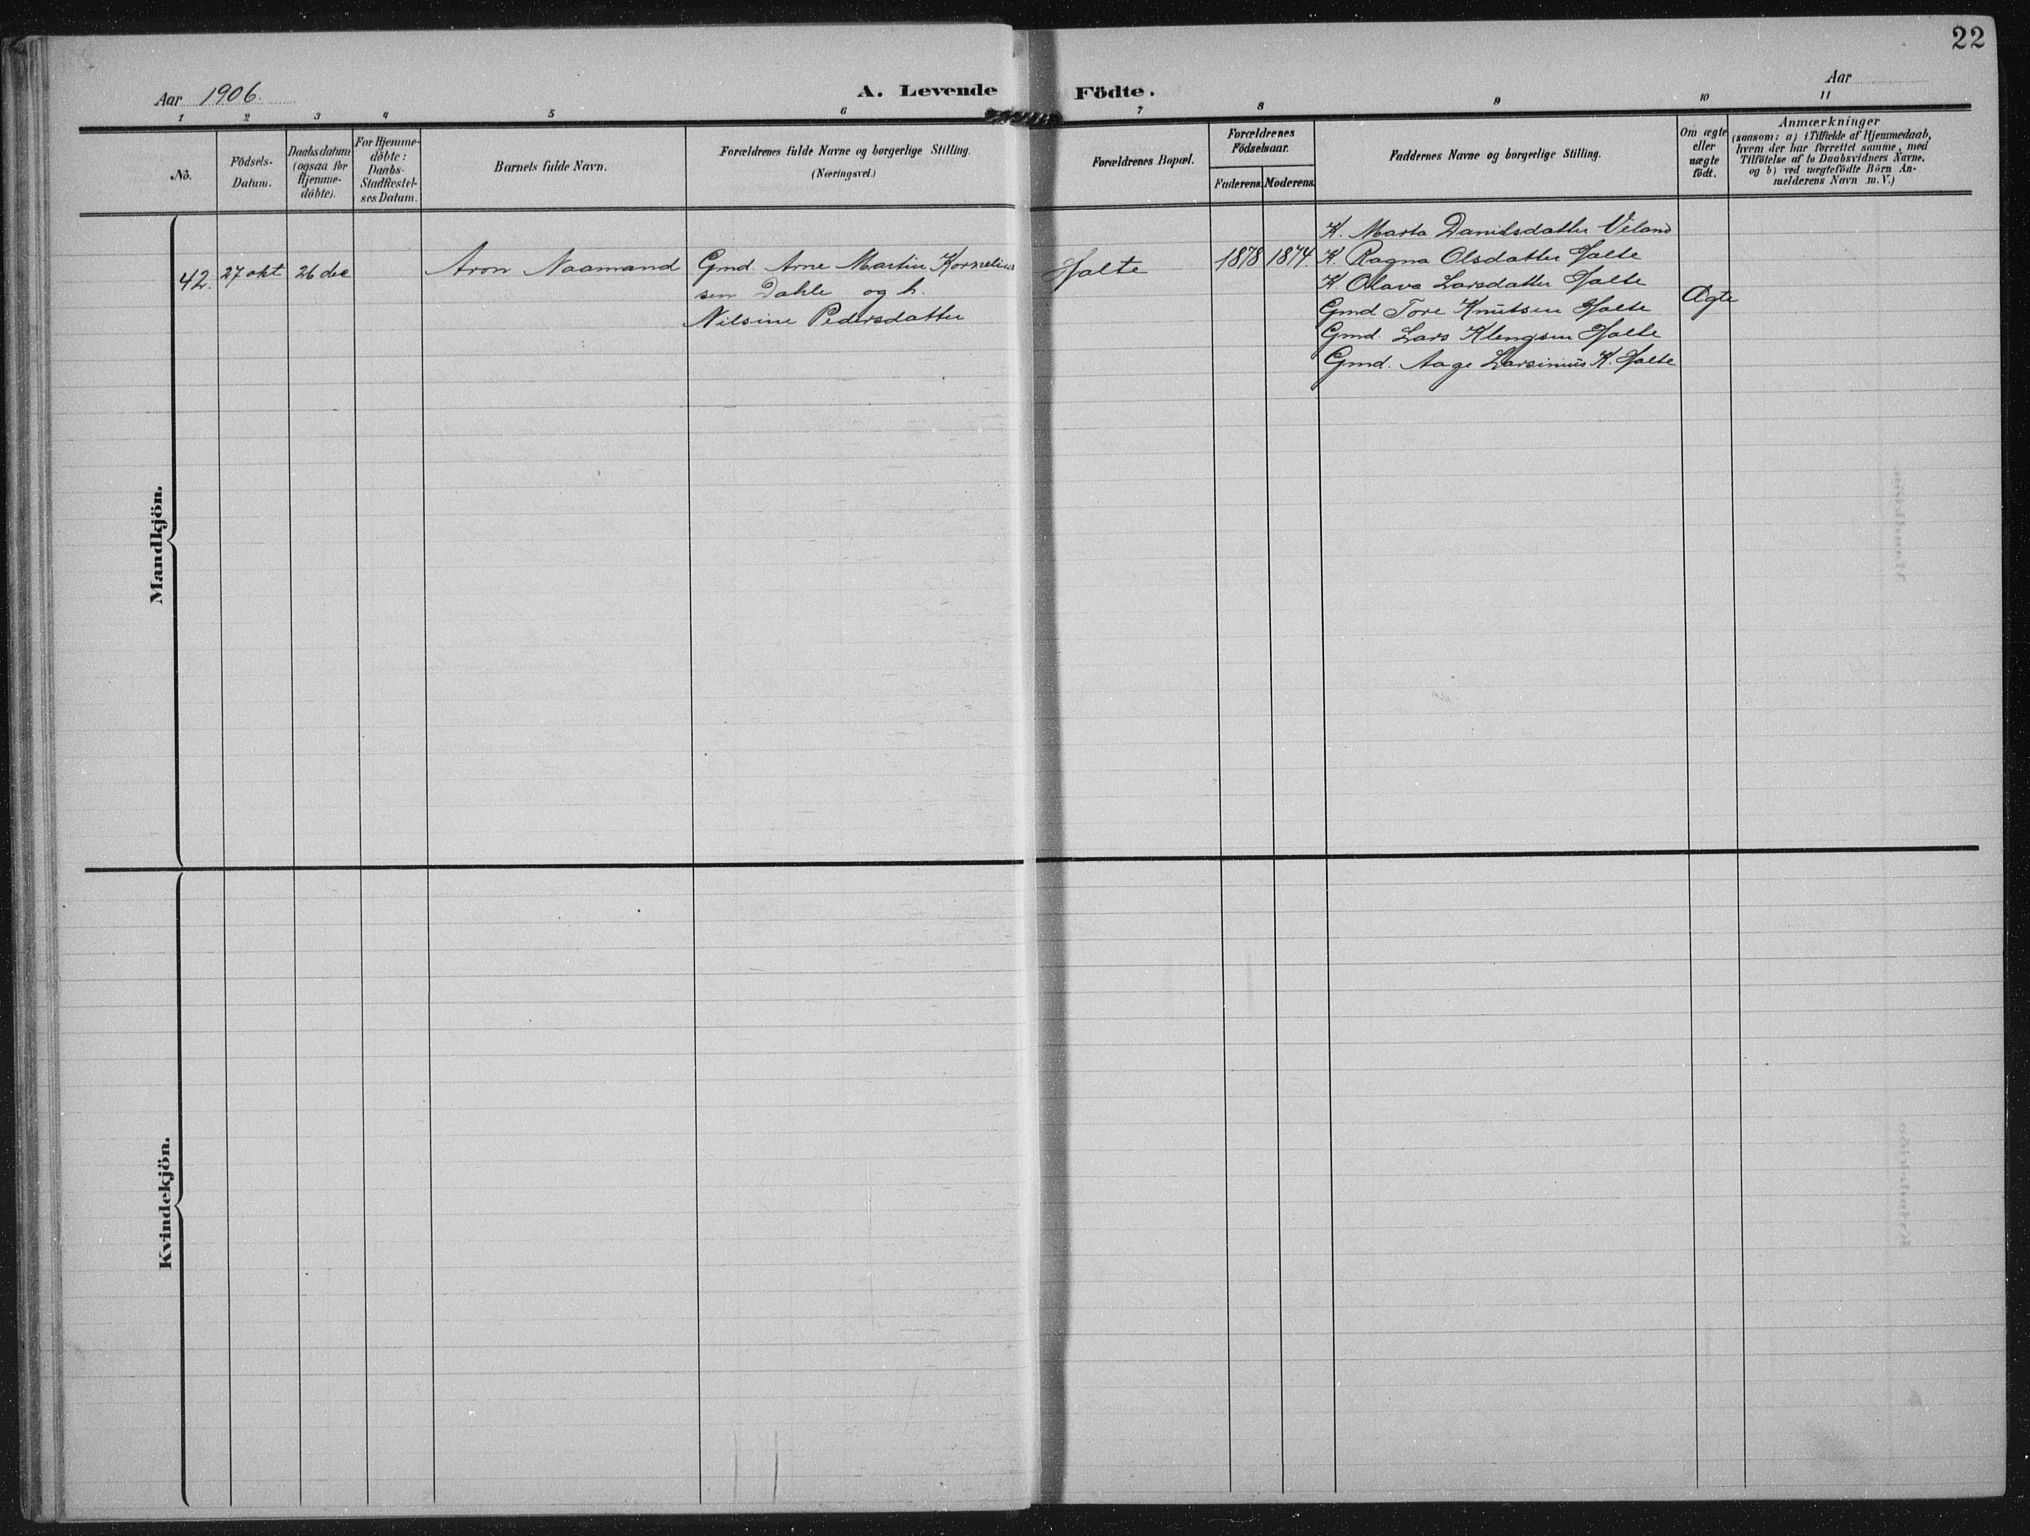 22
Aar 1906.
A. Levende Födte.
Aar
1 2 3 4 5 6 7 8 9 10 11
No.
Födsels-
Datum.
Daabsdatum
(ogsaa for
Hjemme-
döbte).
For Hjemme-
döbte:
Daabs-
Stadfæstel-
ses Datum.
Barnets fulde Navn.
Forældrenes fulde Navne og borgerlige Stilling.
(Næringsvei.)
Forældrenes Bopæl.
Forældrenes
Födselsaar.
Faderens. Moderens.
Faddernes Navne og borgerlige Stilling.
Om ægte
eller
uægte
födt.
Anmærkninger
(saasom: a) i Tilfælde af Hjemmedaab,
hvem der har forrettet samme, med
Tilföielse af to Daabsvidners Navne,
og b) ved uægtefödte Börn An-
melderens Navn m. V.)
Mandkjön.
42. 27 okt 26 dec
Aron Naamand
Gmd. Arne Martin Kornelius
sen Dahle og h.
Nilsine Pedersdatter
Holte
1878 1874.
K. Marta Danilsdatter Veland
K. Ragna Olsdatter Holte
K Olava Larsdatter Holte
Gmd Tore Knutsen Holte
Gmd. Lars Klengsen Holte
Gmd. Aage Larsinius K. Holte
Ægte
Kvindekjön.